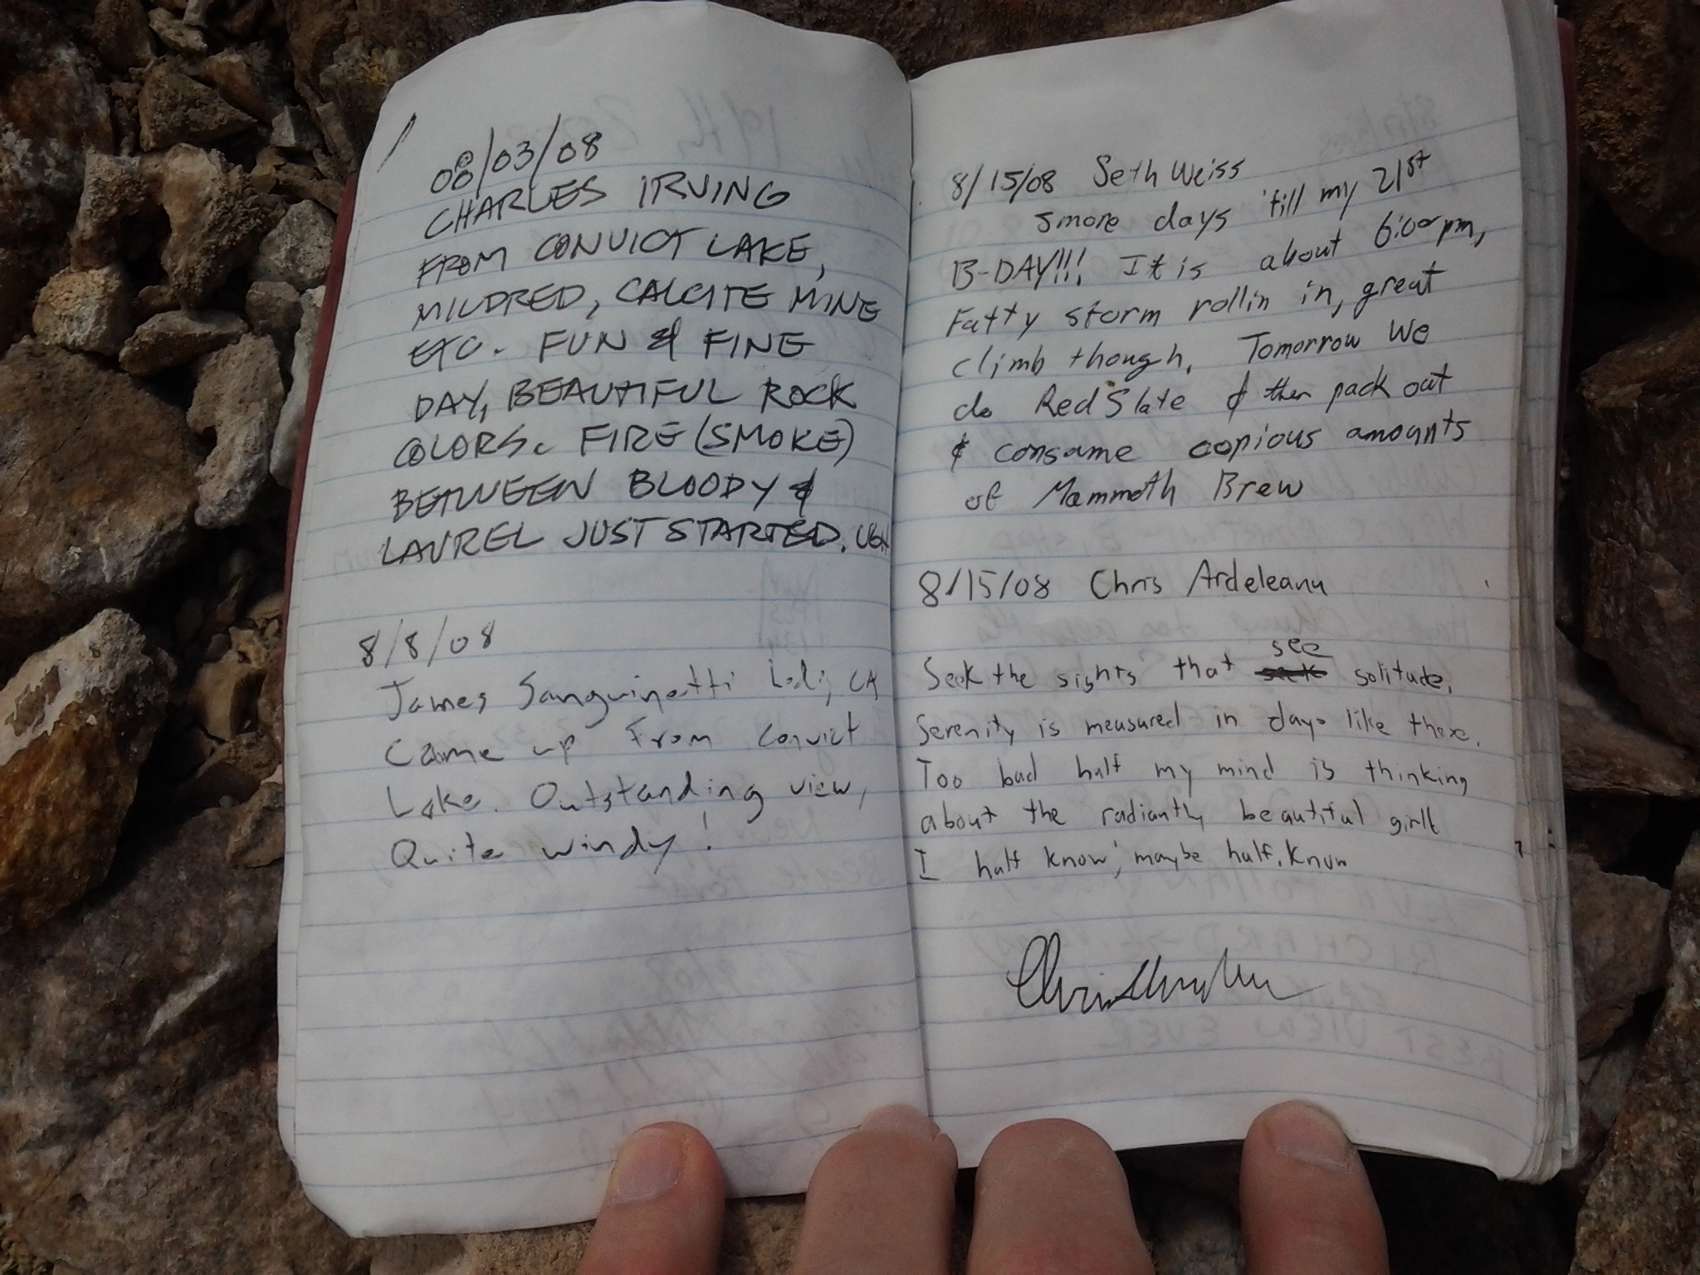 08/03/08
CHARLES IRVING
FROM CONVICT LAKE,
MILDRED, CALCITE MINE
ETC. FUN & FINE
DAY, BEAUTIFUL ROCK
COLORS. FIRE (SMOKE)
BETWEEN BLOODY &
LAUREL JUST STARTED.
8/8/08
James Sanguinetti Lodi, CA
Came up From Convict
Lake. Outstanding view,
Quite windy!
8/15/08 Seth Weiss
5more days 'till my 21st
B-DAY!!! It is about 6:00pm,
Fatty storm rollin in, great
climb though. Tomorrow We
do Red Slate & then pack out
& consume copious amounts
of Mammoth Brew
8/15/08 Chris Ardeleanu
see
Seek the sights that solitude,
Serenity is measured in days like these.
Too bad half my mind is thinking
about the radiantly beautiful girl
I half know, maybe half. Know